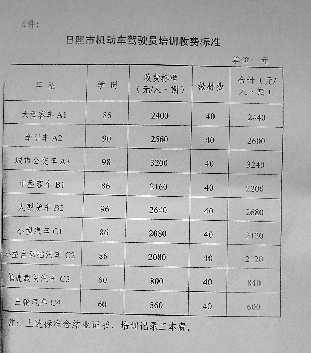 附件:
日照市机动车驾驶员培训收费标准
单位: 元
车型 学时 收费标准(元/人·期) 教材费 合计(元/人·期)
大型客车 A1 86 2400 40 2440
牵引车 A2 90 2560 40 2600
城市公交车 A3 98 3200 40 3240
中型客车 B1 86 2160 40 2200
大型货车 B2 96 2640 40 2680
小型汽车 C1 86 2080 40 2120
小型自动挡汽车 C2 86 2080 40 2120
低速载货汽车 C3 60 800 40 840
三轮汽车 C4 60 560 40 600
注: 上述标准含结业证书、培训记录工本费。